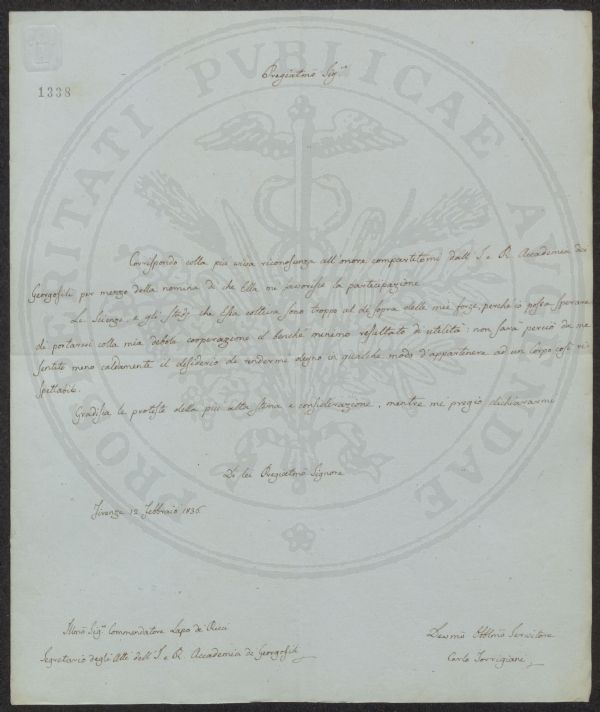 1338
PROSPERITATI PVBLICAE AVGENDAE
Pregiatmo Sigre
Corrispondo colla più viva riconosenza all'onore compartitomi dall'I. e R. Accademia dei
Georgofili per mezzo della nomina di che Ella mi favorisce la partecipazione
Le Scienze e gli studj che Essa coltiva sono troppo al di sopra delle mie forze, perchè io possa sperare
di portarvi colla mia debole cooperazione il benchè menomo resultato di utilità: non sarà perciò da me
sentito meno caldamente il desiderio di rendermi degno in qualche modo d'appartenere ad un Corpo così ri-
spettabile.
Gradisca le proteste della più alta stima e considerazione, mentre mi pregio dichiararmi
Di lei Pregiatmo Signore
Firenze 12 Febbraio 1836
Illmo Sigr Commendatore Lapo de Ricci
Segretario degli Atti dell'I. e R. Accademia dei Georgofili
Devmo Obblmo Servitore
Carlo Torrigiani